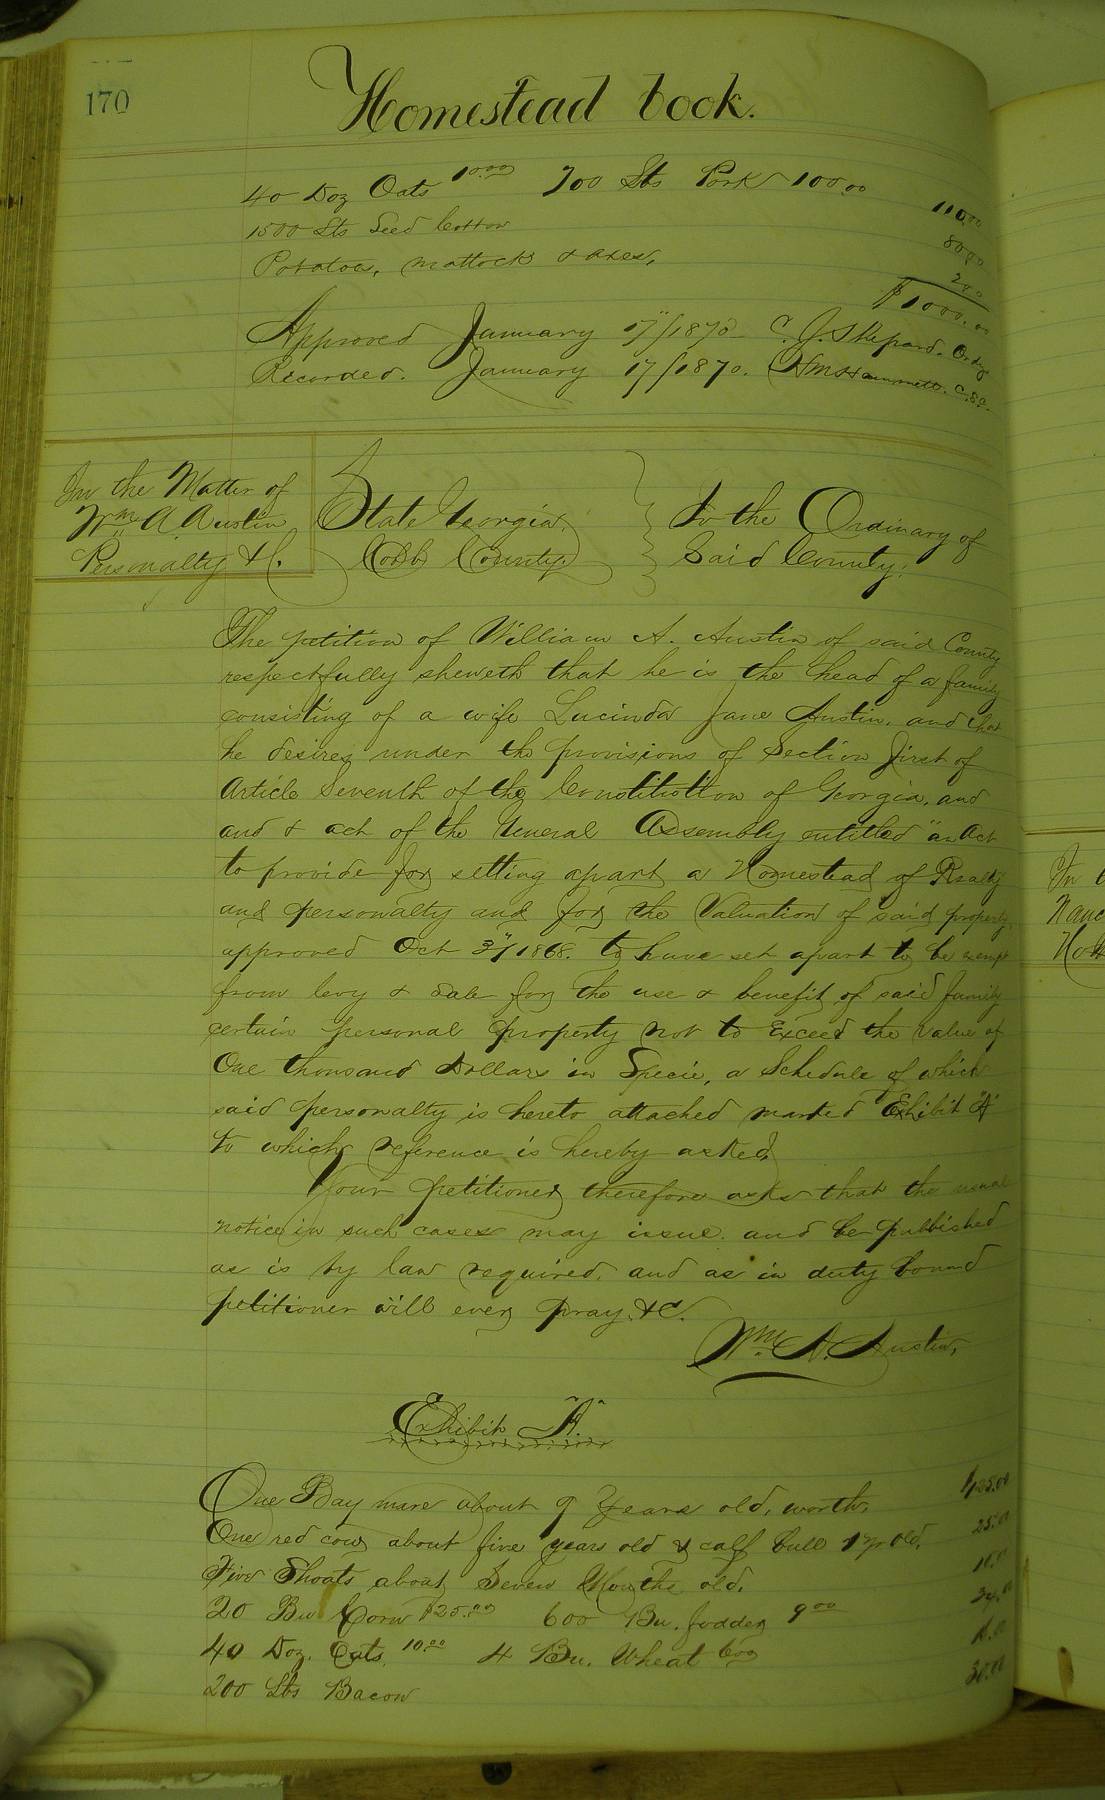 170
Homestead book.
40 Doz Oats 10.00 700 Lbs Pork 100.00 110.00
1500 Lbs Seed Cotton 80.00
Potatoes, mattock & axes, 2.00
$1000.00
Approved January 17"/1870 C. J. Shepard. Ordy
Recorded. January 17/1870. Hammett. C.S.C.
In the Matter of
Wm A Austin
Personalty &C.
State Georgia,
Cobb County.
To the Ordinary of
Said County;
The petition of William A. Austin of said County
respectfully sheweth that he is the head of a family
consisting of a wife Lucinda Jane Austin. and that
he desires under the provisions of Section first of
Article Seventh of the Constitution of Georgia, and
and & act of the General Assembly entitled "an Act
to provide for setting apart a Homestead of Realty
and personalty and for the Valuation of said property,
approved Oct 3"/1868. to have set apart to be exempt
from levy & sale for the use & benefit of said family
certain personal property not to Exceed the value of
One thousand Dollars in Specie, a Schedule of which
said personalty is hereto attached marked Exhibit "A"
to which reference is hereby asked,
Your petitioner therefore asks that the usual
notice in such cases may issue. and be published
as is by law required. and as in duty bound
petitioner will ever pray. &C.
Wm. A. Austin,
Exhibit "A."
One Bay mare about 9 Years old, worth, 125.00
One red cow about five years old & calf bull 1 yr old. 25.00
Five Shoats about Seven Months old. 10.00
20 Bu Corn $25.00 600 Bu. fodder 9.00 34.00
40 Doz. Oats. 10.00 4 Bu. Wheat 6.00
200 Lbs Bacon 30.00
In
Nanc